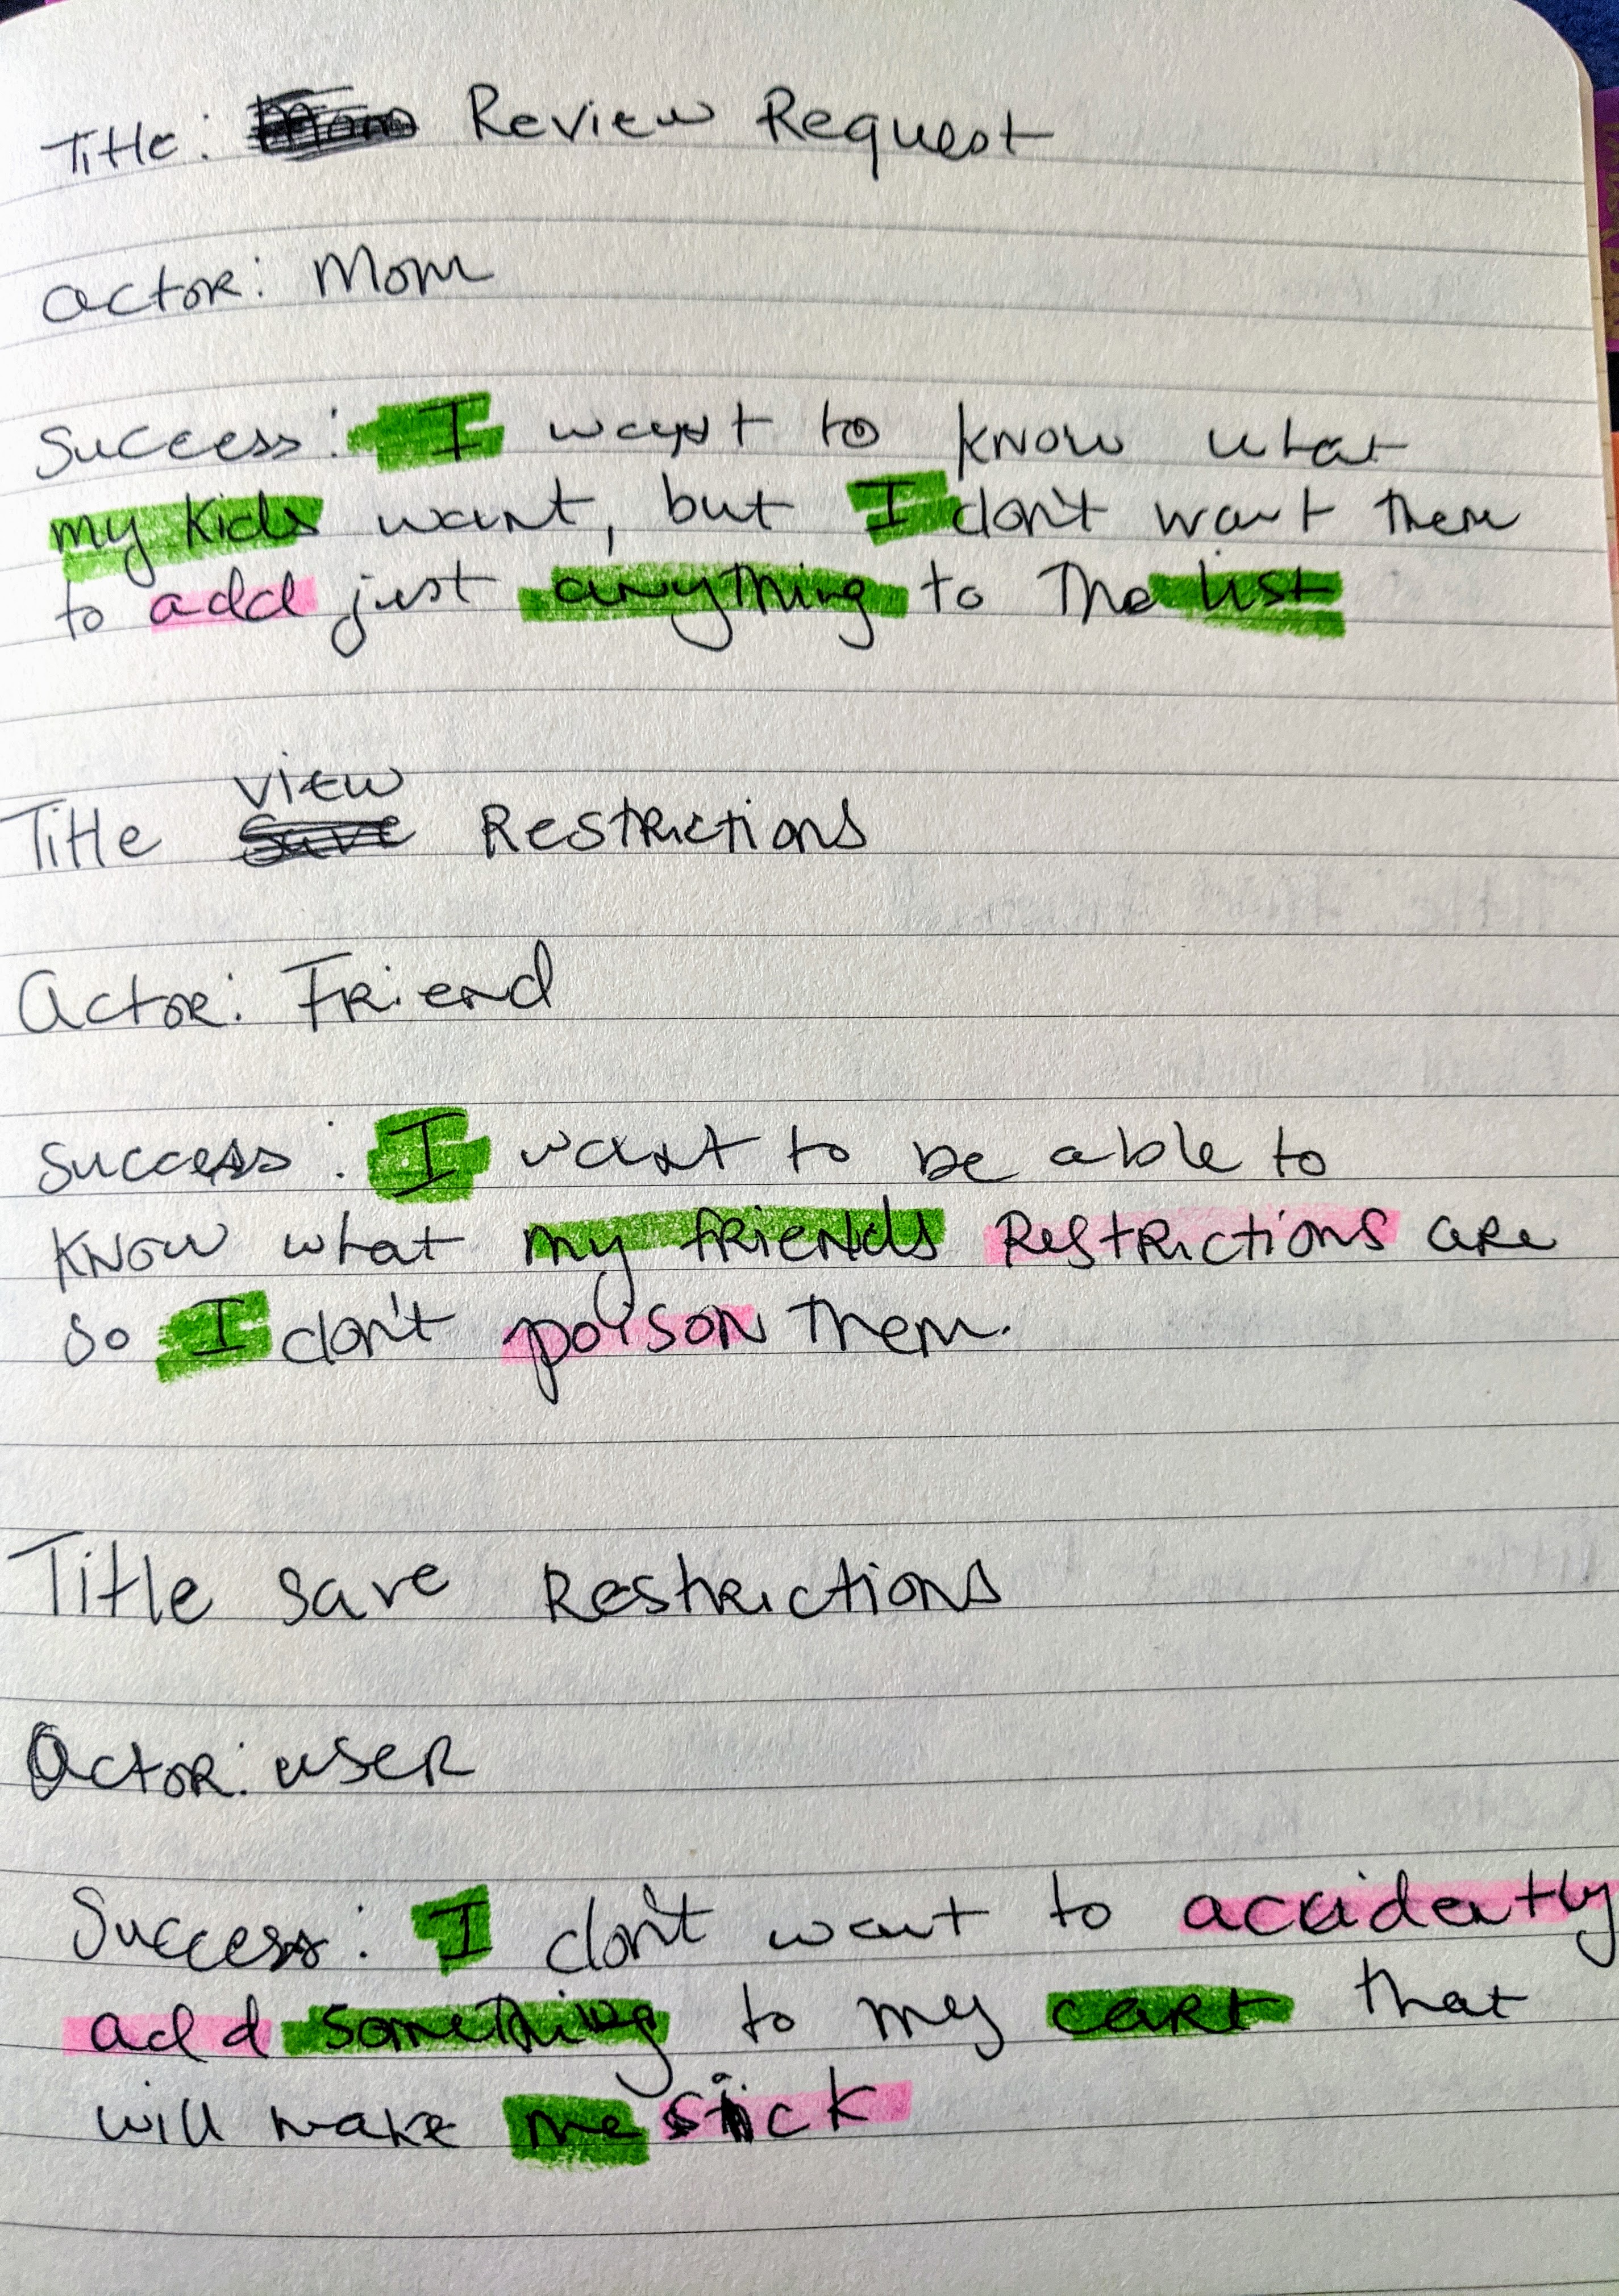 Title: Review Request
actor: Mom
Success: I want to know what
my kids want, but I don't want them
to add just anything to the list
view
Title Restrictions
Actor: Friend
success: I want to be able to
know what my friends Restrictions are
so I don't poison them.
Title save Restrictions
Actor: user
Success: I don't want to accidently
add something to my cart that
will make me sick